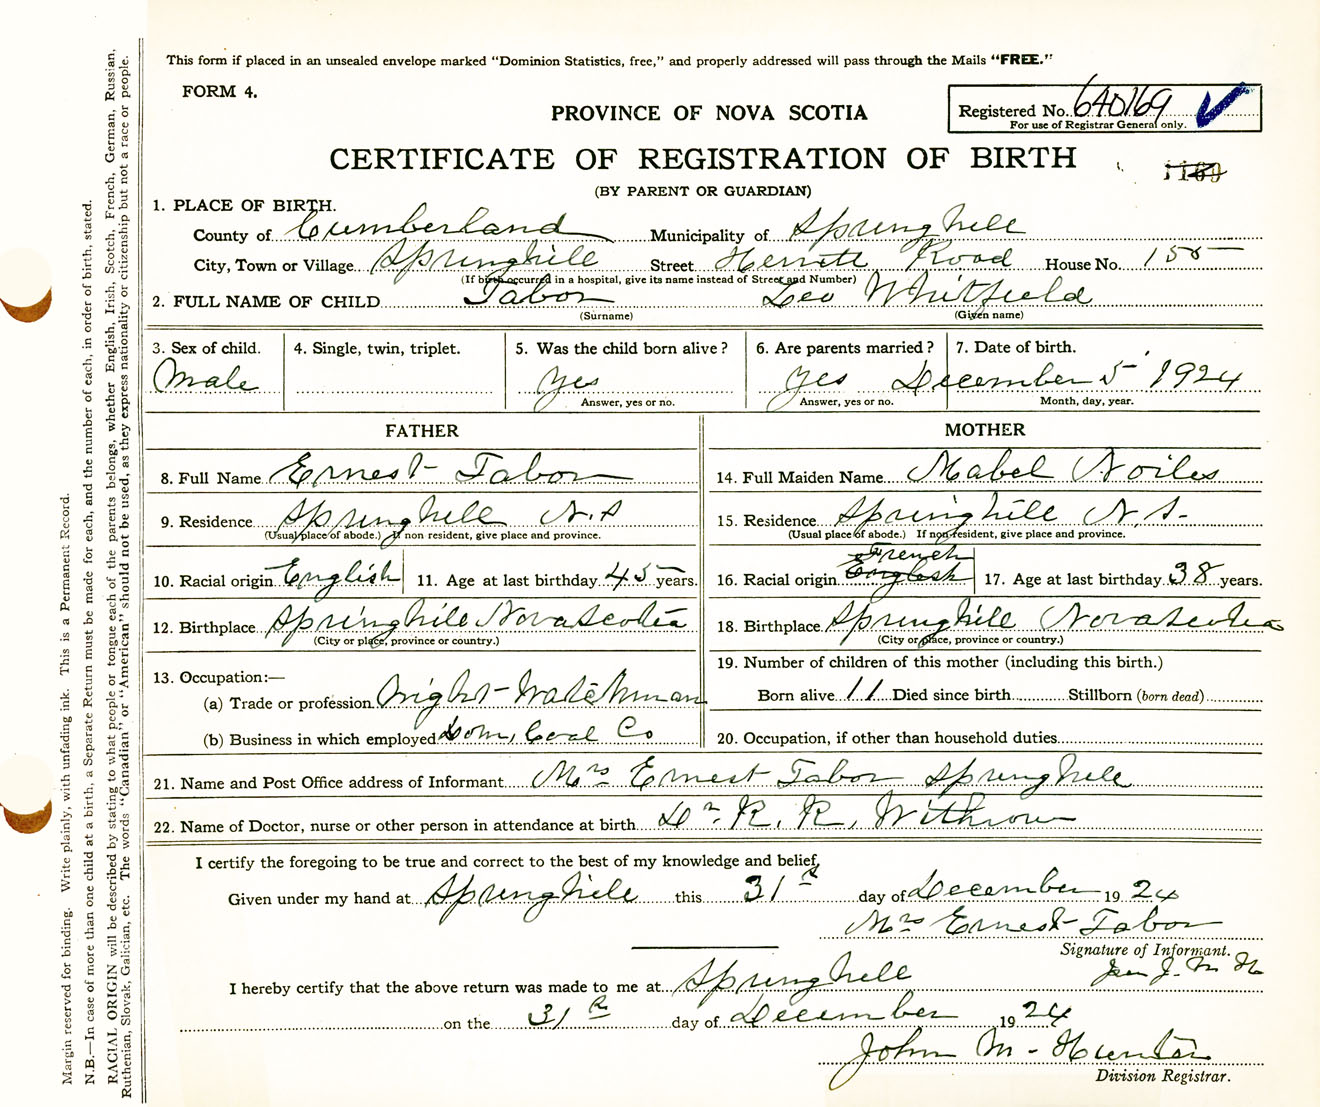 This form if placed in an unsealed envelope marked "Dominion Statistics, free," and properly addressed will pass through the Mails "FREE."
FORM 4.
PROVINCE OF NOVA SCOTIA
Registered No. 640169
For use of Registrar General only.
CERTIFICATE OF REGISTRATION OF BIRTH
(BY PARENT OR GUARDIAN)
1. PLACE OF BIRTH.
County of Cumberland Municipality of Springhill
City, Town or Village Springhill Street Herrett Road House No. 155
(If birth occurred in a hospital, give its name instead of Street and Number)
2. FULL NAME OF CHILD Tabor Leo Whitfield
(Surname) (Given name)
3. Sex of child. 4. Single, twin, triplet. 5. Was the child born alive? 6. Are parents married? 7. Date of birth.
Male yes yes December 5 1924
Answer, yes or no. Answer, yes or no. Month, day, year.
FATHER MOTHER
8. Full Name Ernest Tabor 14. Full Maiden Name Mabel Noiles
9. Residence Springhill N.S 15. Residence Springhill N.S.
(Usual place of abode.) If non resident, give place and province. (Usual place of abode.) If non resident, give place and province.
French
10. Racial origin English 11. Age at last birthday 45 years. 16. Racial origin English 17. Age at last birthday 38 years.
12. Birthplace Springhill Nova Scotia 18. Birthplace Springhill Nova Scotia
(City or place, province or country.) (City or place, province or country.)
13. Occupation:— 19. Number of children of this mother (including this birth.)
(a) Trade or profession Night-Watchman Born alive 11 Died since birth Stillborn (born dead)
(b) Business in which employed Dom, Coal Co 20. Occupation, if other than household duties
21. Name and Post Office address of Informant Mrs Ernest Tabor Springhill
22. Name of Doctor, nurse or other person in attendance at birth Dr. R. R. Withrow
I certify the foregoing to be true and correct to the best of my knowledge and belief,
Given under my hand at Springhill this 31st day of December 1924
Mrs Ernest Tabor
Signature of Informant.
per J. M. H
I hereby certify that the above return was made to me at Springhill
on the 31st day of December 1924
John M. Hunter
Division Registrar.
Margin reserved for binding. Write plainly, with unfading ink. This is a Permanent Record.
N.B.—In case of more than one child at a birth, a Separate Return must be made for each, and the number of each, in order of birth, stated.
RACIAL ORIGIN will be described by stating to what people or tongue each of the parents belongs, whether English, Irish, Scotch, French, German, Russian,
Ruthenian, Slovak, Galician, etc. The words "Canadian" or "American" should not be used, as they express nationality or citizenship but not a race or people.